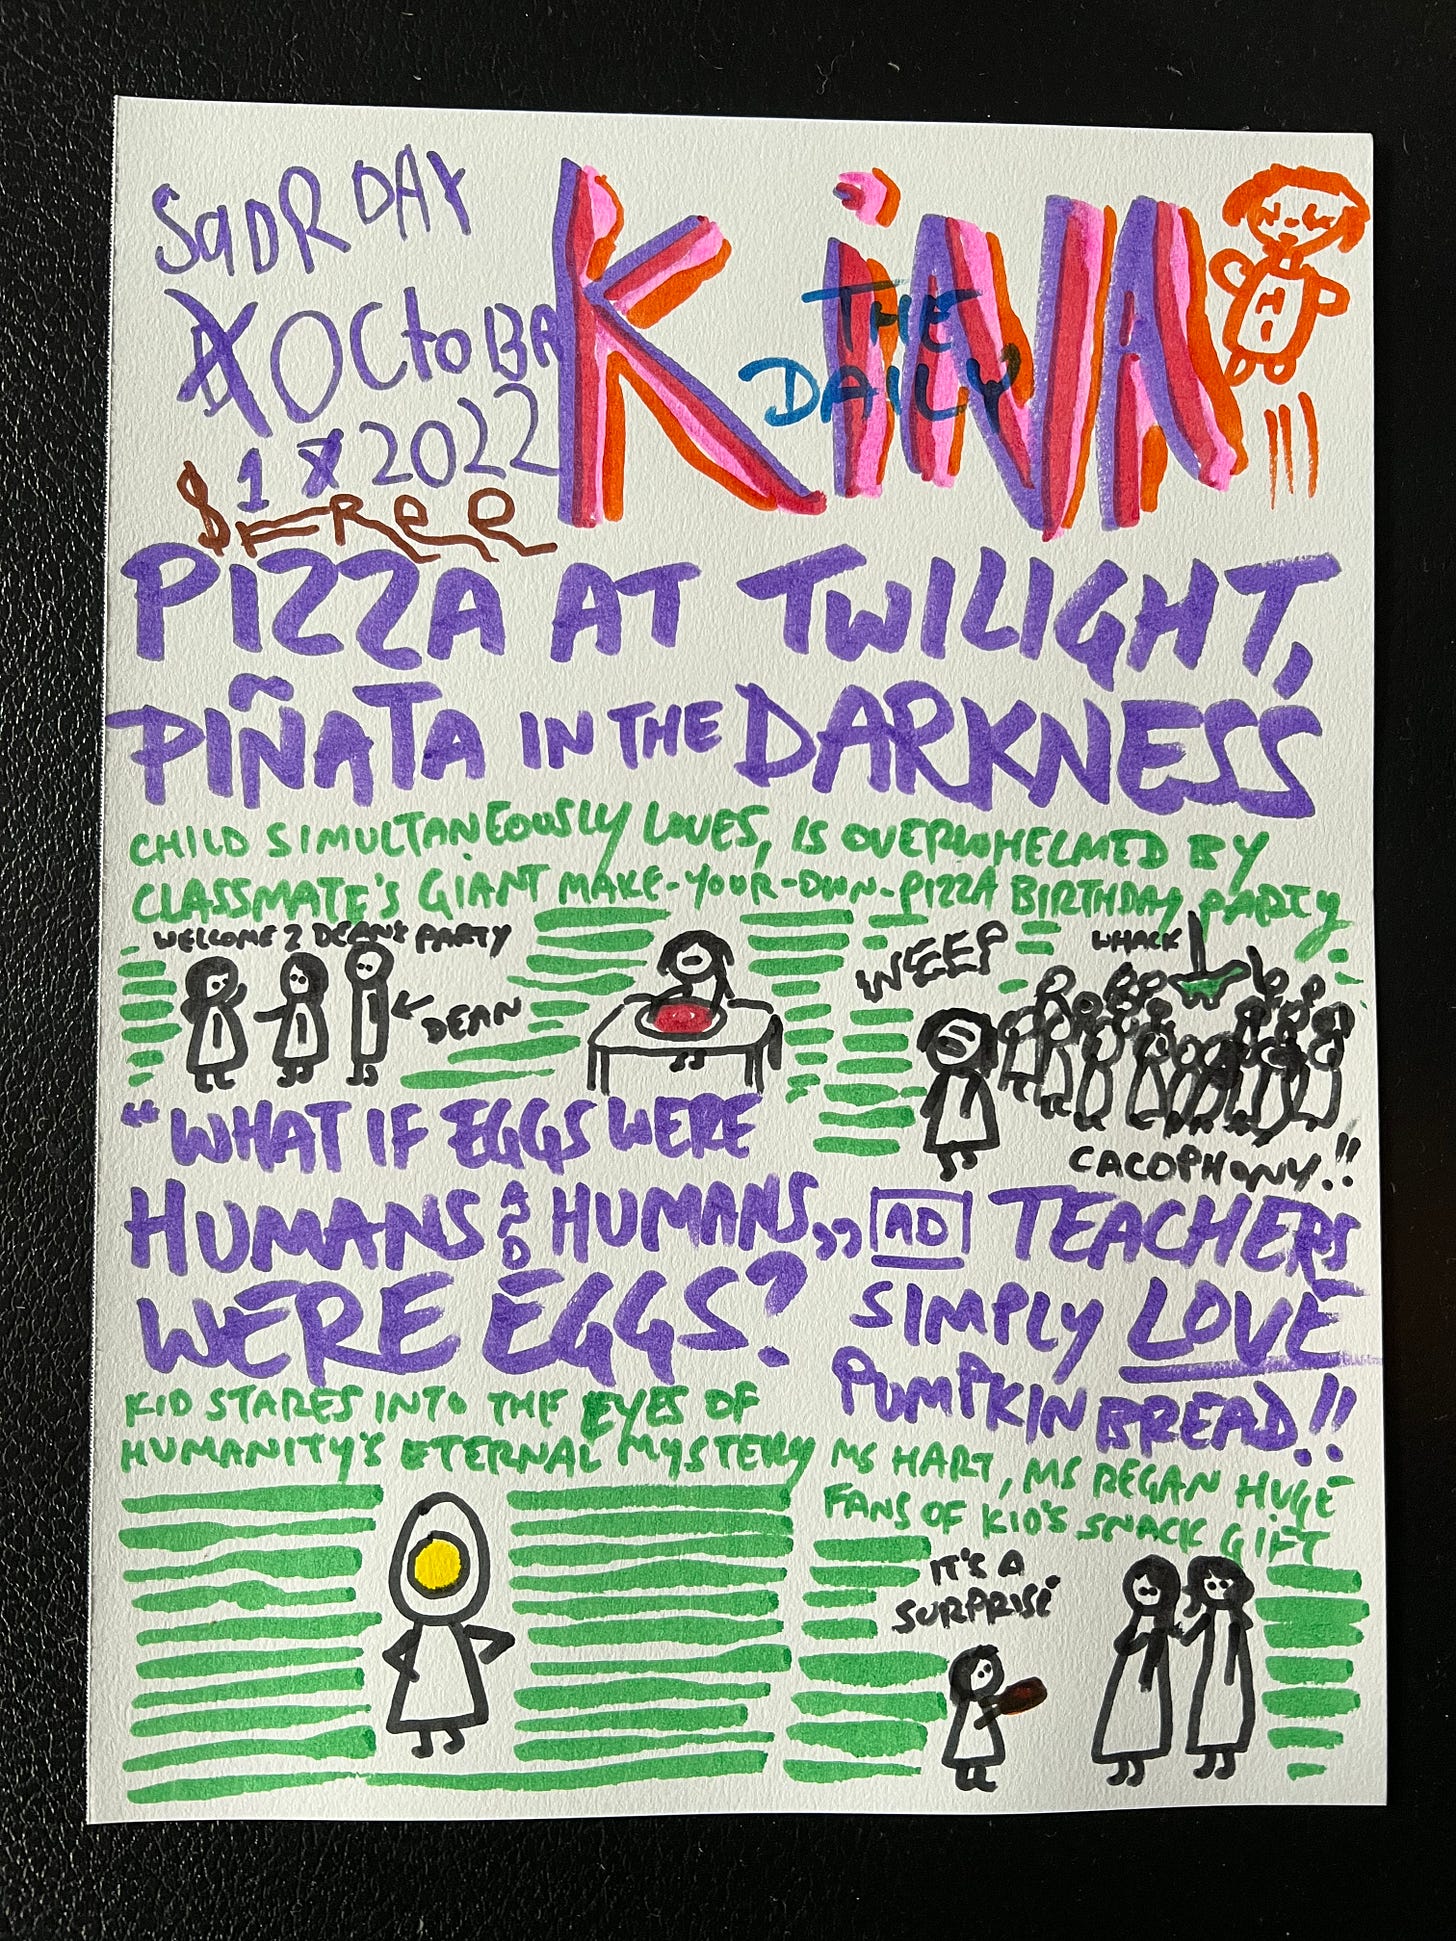 SaDRDAY
OCtoBA
1 2022
$ FRee
THE
DAILY
KiNA
PIZZA AT TWILIGHT,
PIÑATA IN THE DARKNESS
CHILD SIMULTANEOUSLY LOVES, IS OVERWHELMED BY
CLASSMATE'S GIANT MAKE-YOUR-OWN-PIZZA BIRTHDAY PARTY
WELCOME 2 DEAN'S PARTY
DEAN
WEEP
WHACK
CACOPHONY!!
"WHAT IF EGGS WERE
HUMANS AND HUMANS,,
WERE EGGS?
KID STARES INTO THE EYES OF
HUMANITY'S ETERNAL MYSTERY
AD TEACHERS
SIMPLY LOVE
PUMPKIN BREAD!!
MS HART, MS REGAN HUGE
FANS OF KID'S SNACK GIFT
IT'S A
SURPRISE